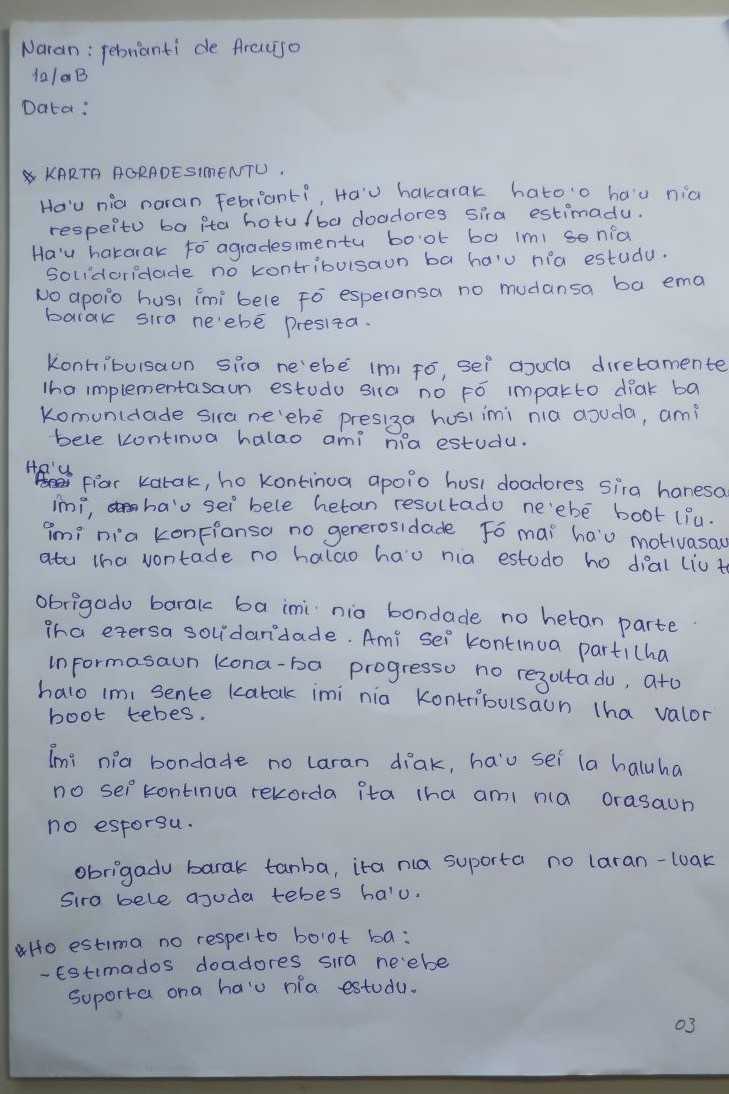 Naran : febrianti de Araujo
12/aB
Data :
KARTA AGRADESIMENTU .
Ha'u nia naran Febrianti, Ha'u hakarak hato'o ha'u nia
respeitu ba ita hotu / ba doadores sira estimadu.
Ha'u hakarak fó agradesimentu bo'ot ba imi nia
Solidaridade no kontribuisaun ba ha'u nia estudu.
No apoio husi imi bele Fó esperansa no mudansa ba ema
barak sira ne'ebé presiza.
Kontribuisaun sira ne'ebé imi fó, sei ajuda diretamente
iha implementasaun estudu sira no fó impakto diak ba
Komunidade sira ne'ebē presiza husi imi nia ajuda, ami
bele kontinua halao ami nia estudu.
Ha'u
fiar katak, ho kontinua apoio husi doadores sira hanesa
imi, ha'u sei bele hetan resultadu ne'ebē boot liu.
imi nia konfiansa no generosidade Fó mai ha'u motivasau
atu iha vontade no halao ha'u nia estudo ho dial liu te
Obrigadu barak ba imi nia bondade no hetan parte
iha ezersa solidaridade. Ami sei kontinua partilha
informasaun kona-ba progressu no rezultadu, atu
halo imi sente katak imi nia kontribuisaun iha valor
boot tebes.
imi nia bondade no laran diak, ha'u sei la haluha
no sei kontinua rekorda ita iha ami nia orasaun
no esporsu.
Obrigadu barak tanba, ita nia suporta no laran-luak
sira bele ajuda tebes ha'u.
Ho estima no respeito bo'ot ba :
- Estimados doadores sira ne'ebe
Suporta ona ha'u nia estudu.
03